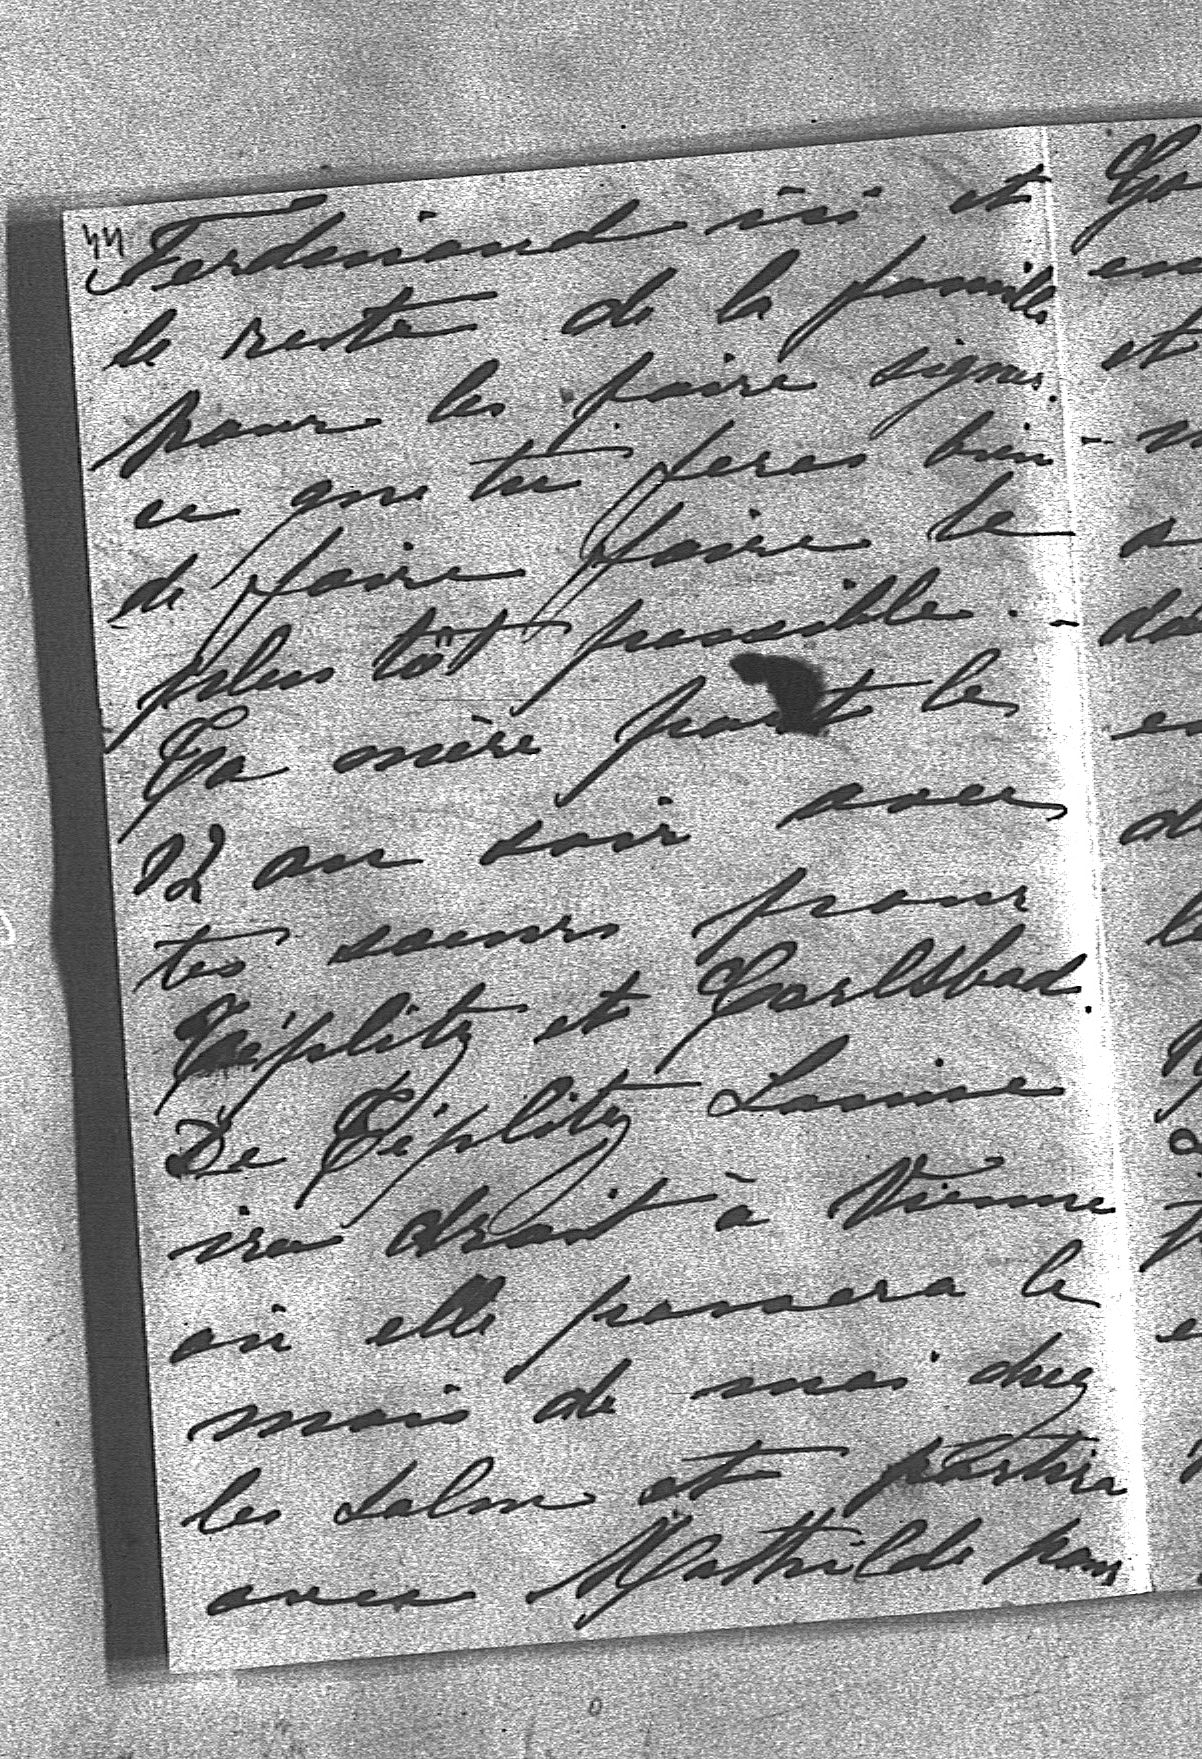 44
Ferdinand ici et
le reste de la famille
pour les faire signer
ce que tu feras bien
de faire faire le
plus tôt possible. -
Ta mère part le
12 au soir avec
tes soeurs pour
Téplitz et Carlsbad.
De Téplitz Louise
ira droit à Vienne
où elle passera le
mois de mai chez
les Salm et partira
avec Mathilde pour